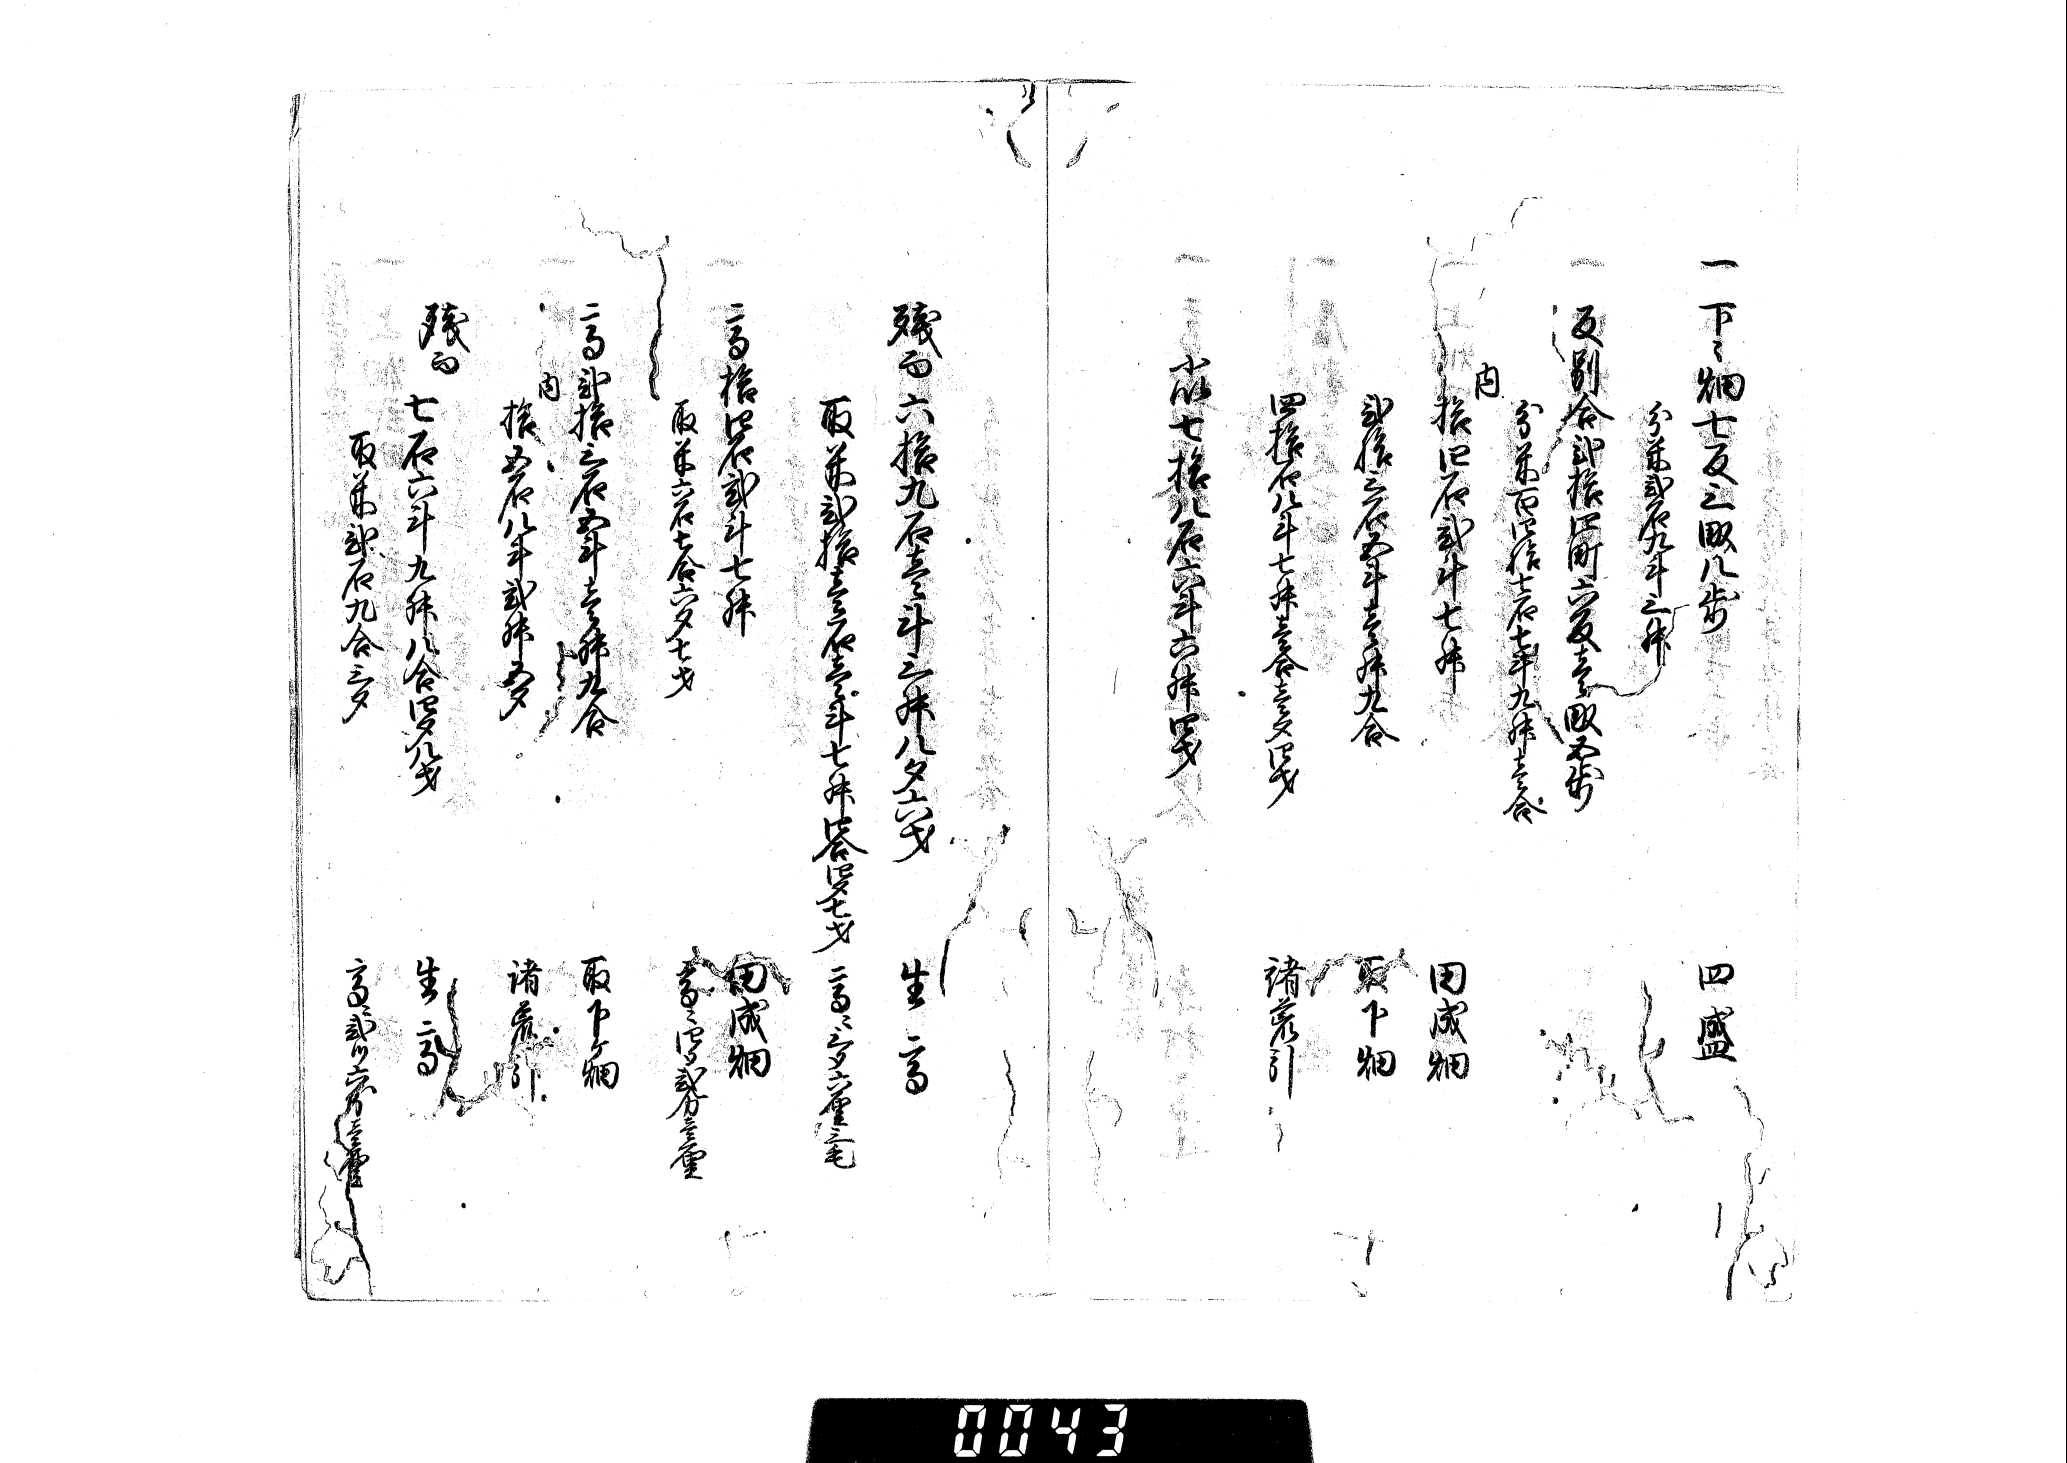 一下々畑七反三畝八歩　四盛
分米弐石九斗三升
反別合弐拾四町六反壱畝五歩
分米百四拾七石七斗九升壱合
内
拾四石弐斗七升　田成畑
弐拾三石五斗壱升九合　取下畑
四拾石八斗七升壱合壱夕四才　諸荒引
小以七拾八石六斗六升四才
残而六拾九石壱斗三升八夕六才　生高
取米弐拾壱石壱斗七升四合四夕七才　高ニ三夕六厘三毛
高拾四石弐斗七升　田成畑
取米六石七合六夕七才　高ニ四夕弐分壱厘
高弐拾三石五斗壱升九合　取下ケ畑
内
拾五石八斗弐升五夕　諸荒引
残而
七石六斗九升八合四夕八才　生高
取米弐石九合三夕　高ニ弐ツ六分壱厘
0043